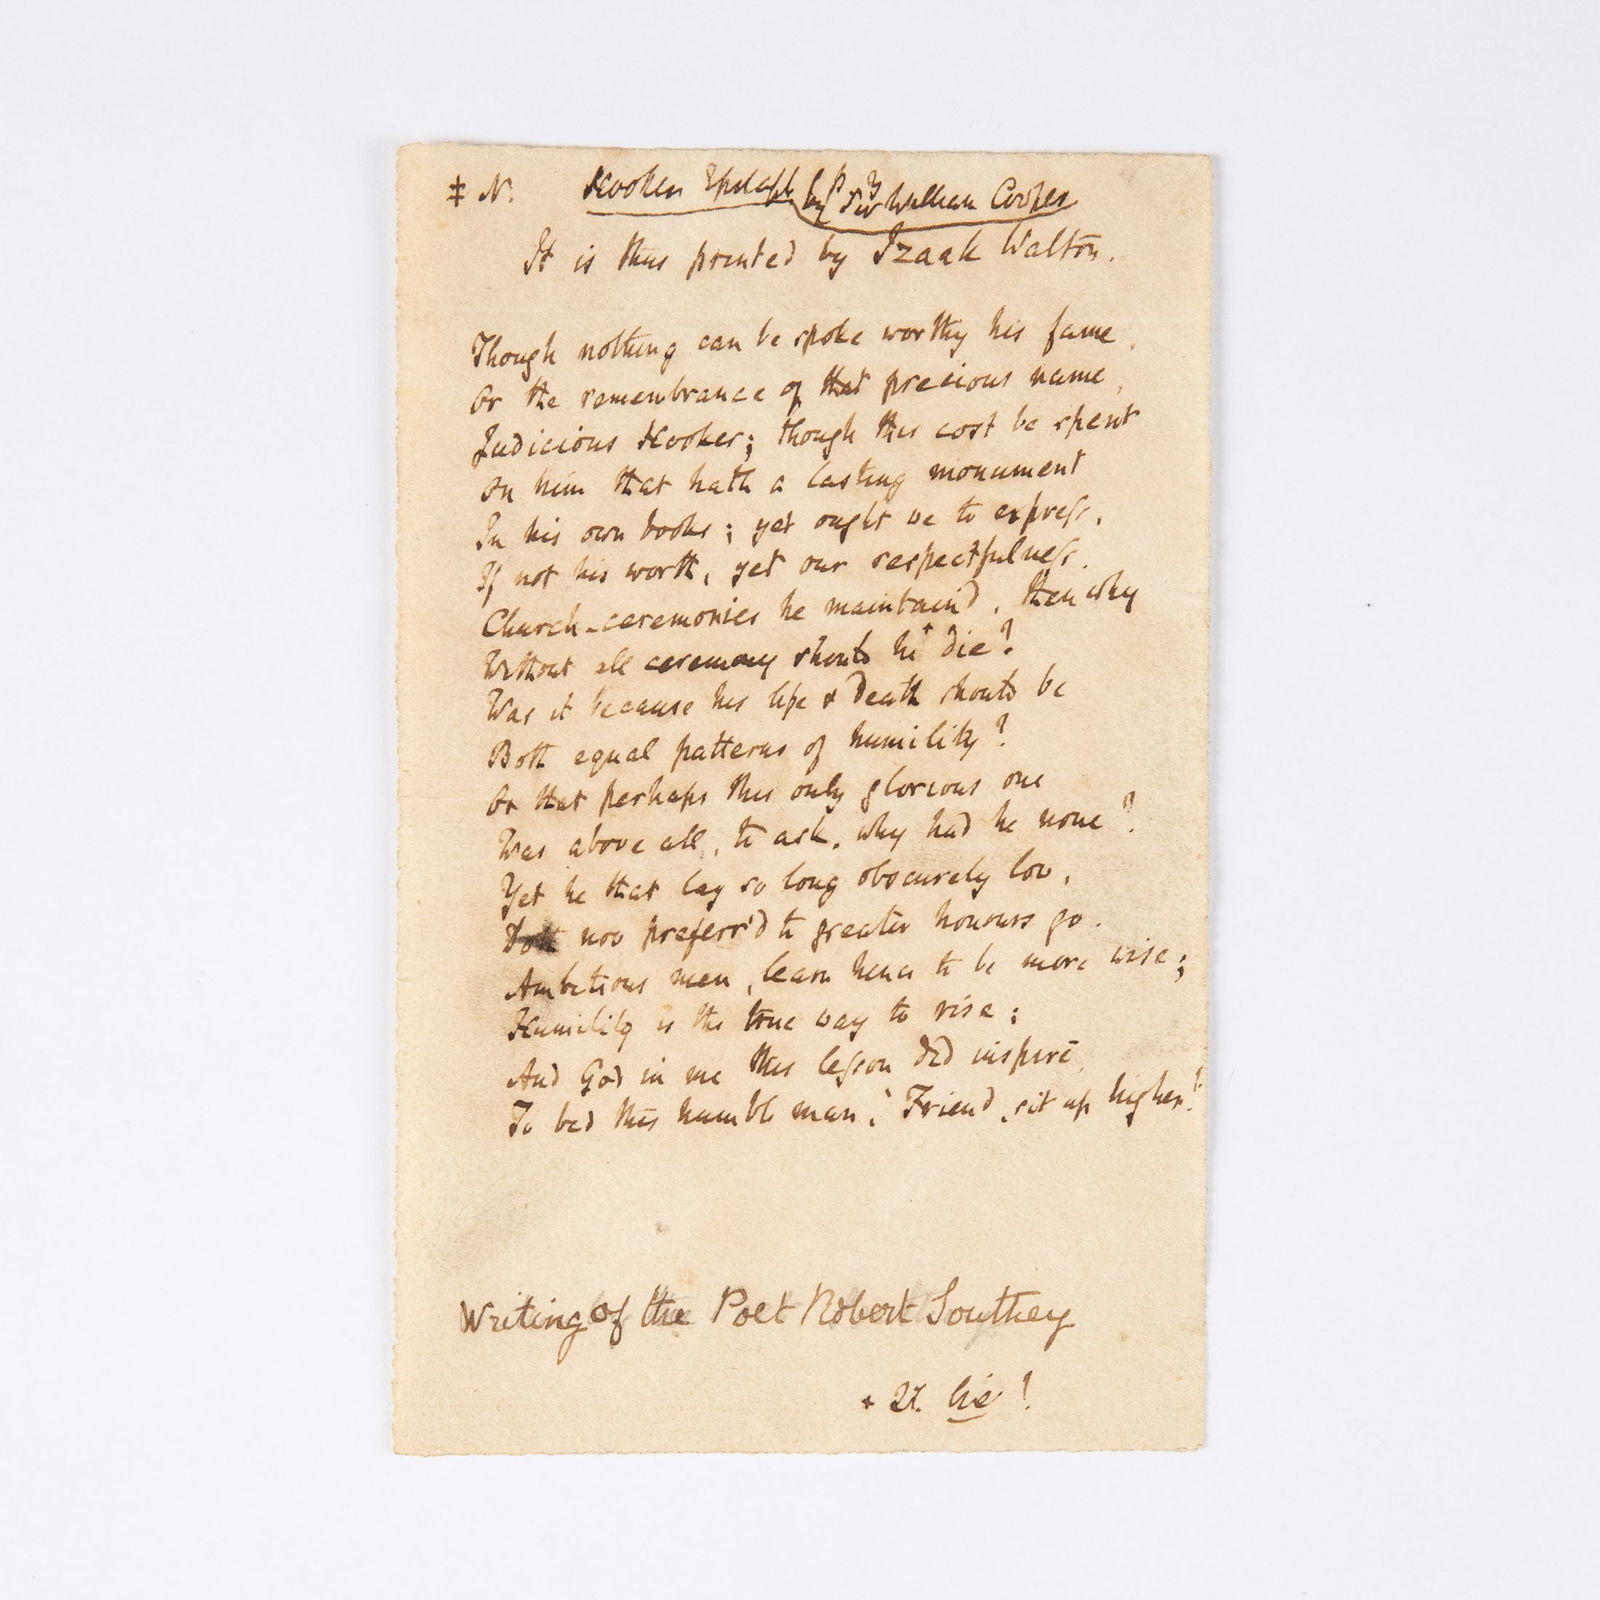 ‡ N. Hookers Epitaph by Sir William Cooper
It is thus printed by Izaak Walton.
Though nothing can be spoke worthy his fame,
Or the remembrance of that precious name,
Judicious Hooker; though this cost be spent
On him that hath a lasting monument
In his own books; yet ought we to express,
If not his worth, yet our respectfulness.
Church-ceremonies he maintain'd, then why
Without all ceremony should he + die?
Was it because his life & death should be
Both equal patterns of humility?
Or that perhaps this only glorious one
Was above all, to ask, why had he none?
Yet he that lay so long obscurely low,
Doth now preferr'd to greater honours go.
Ambitious men, learn hence to be more wise;
Humility is the true way to rise:
And God in me this lesson did inspire,
To bid this humble man, 'Friend, sit up higher!'
Writing of the Poet Robert Southey
+ lie?